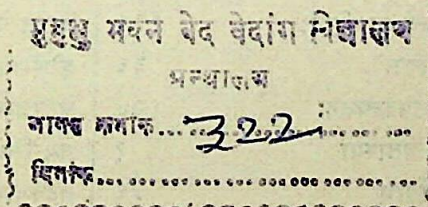 मुमुक्षु भवन वेद वेदांग विद्यालय
ग्रन्थालय
आगत क्रमांक... 322 ...
दिनांक...